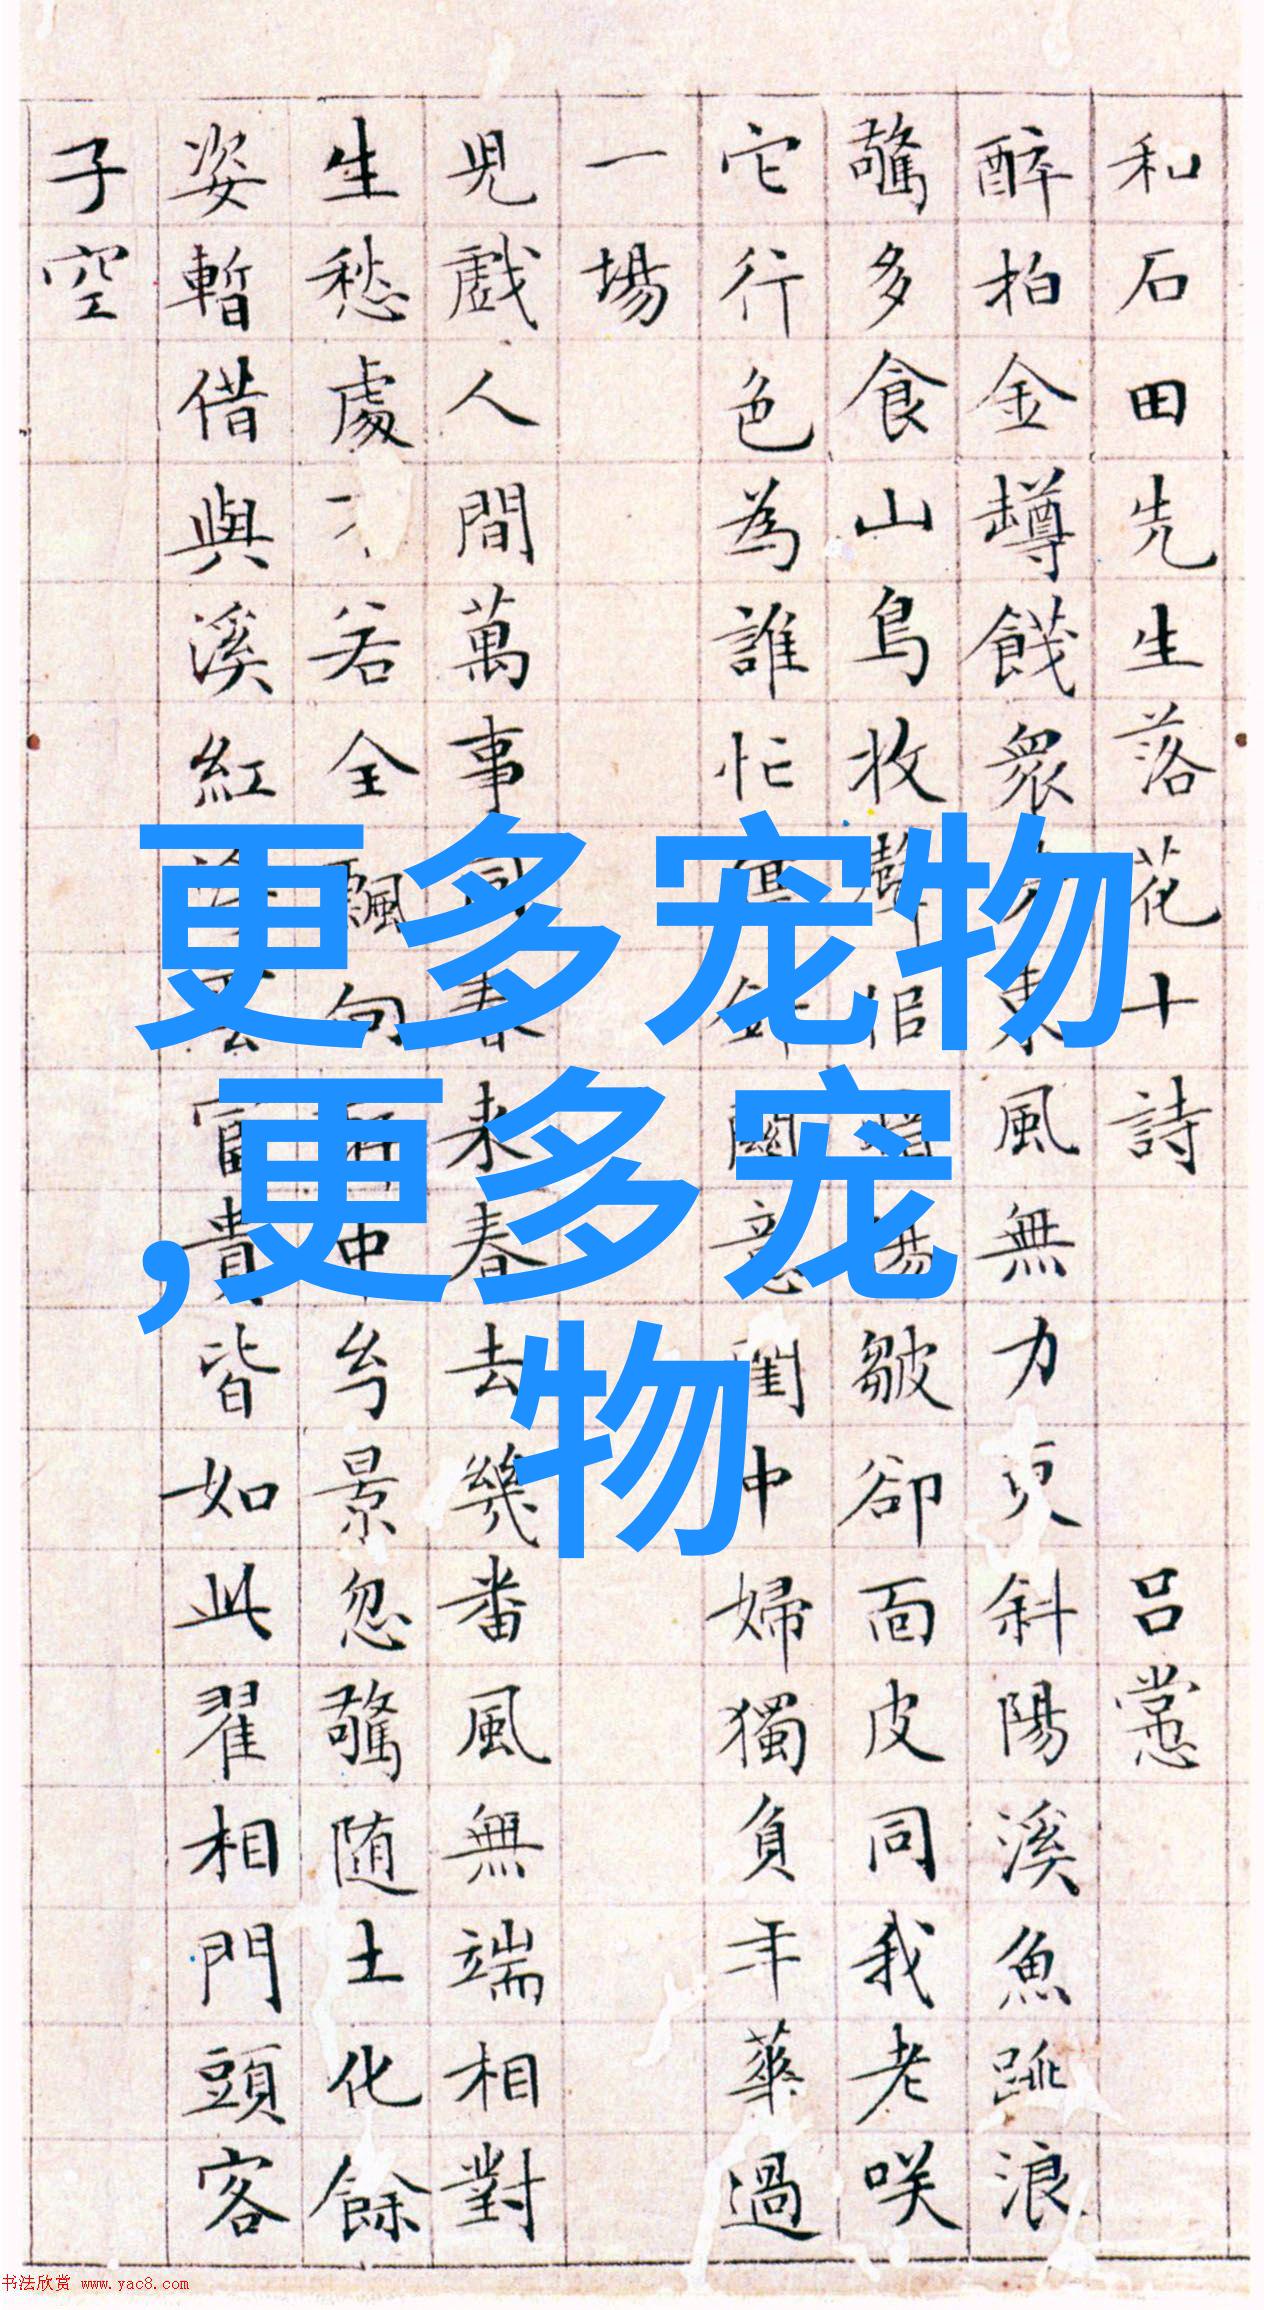 和石田先生落花十詩 吕
醉拍金罇餞眾東風無力更斜陽溪魚跳浪
驚多食山鳥收聲怕皺卻面皮同我老咲
它行色為誰忙關意閨中婦獨負年華過
一場
兒戲人間萬事同春来春去幾番風無端相對
生愁處若全飄句中兮景忽驚随土化餘
姿暫借與溪紅富貴皆如此翟相門頭客
子空
更多宠物
,更多宠
物
书法欣赏 www.yac8.com